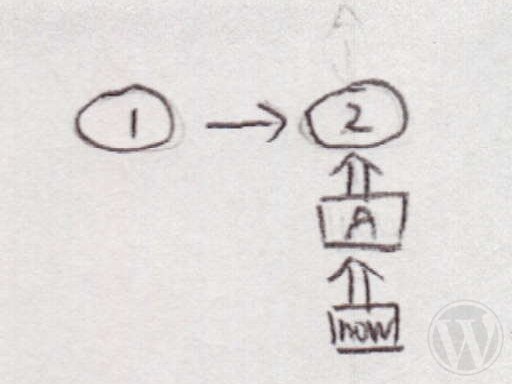 1
2
A
now